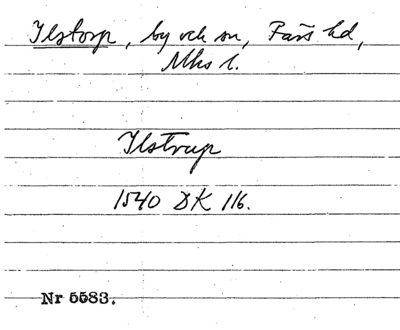 Ilstorp, by och sn, Färs hd,
Mhs l.
Ilstrup
1540 DK 116.
Nr 5583.